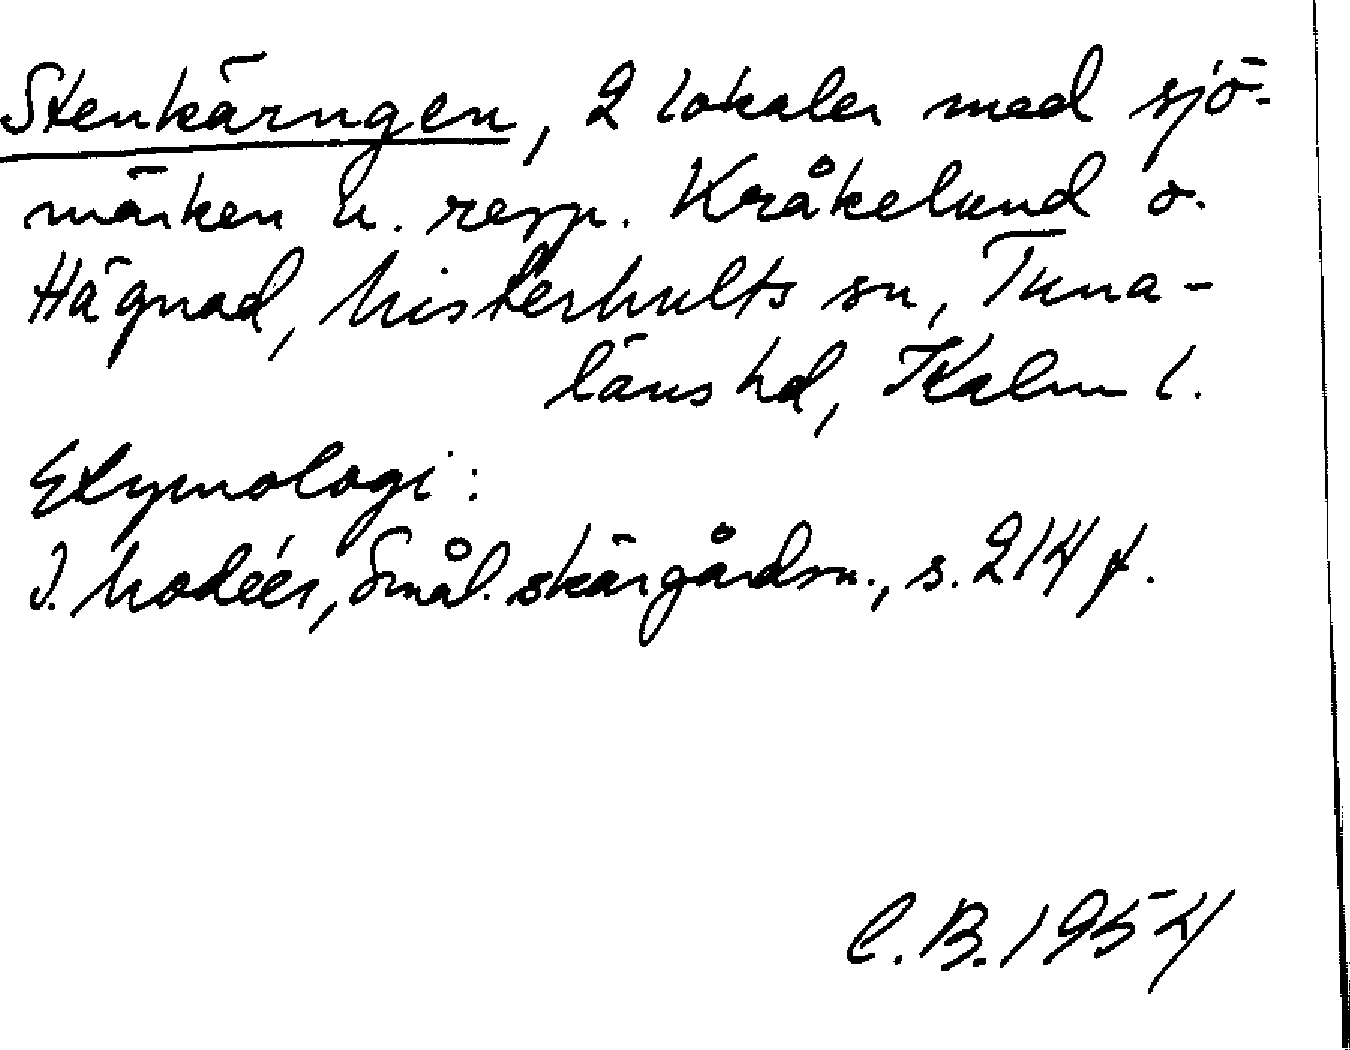 Stenkärngen, 2 lokaler med sjö-
märken u. resp. Kråkelund o.
Hägnad, Misterhults sn, Tuna-
läns hd, Kalm l.
Etymologi:
I. Modéer, Smål. skärgårdsn., s. 214 f.
C.B. 1954